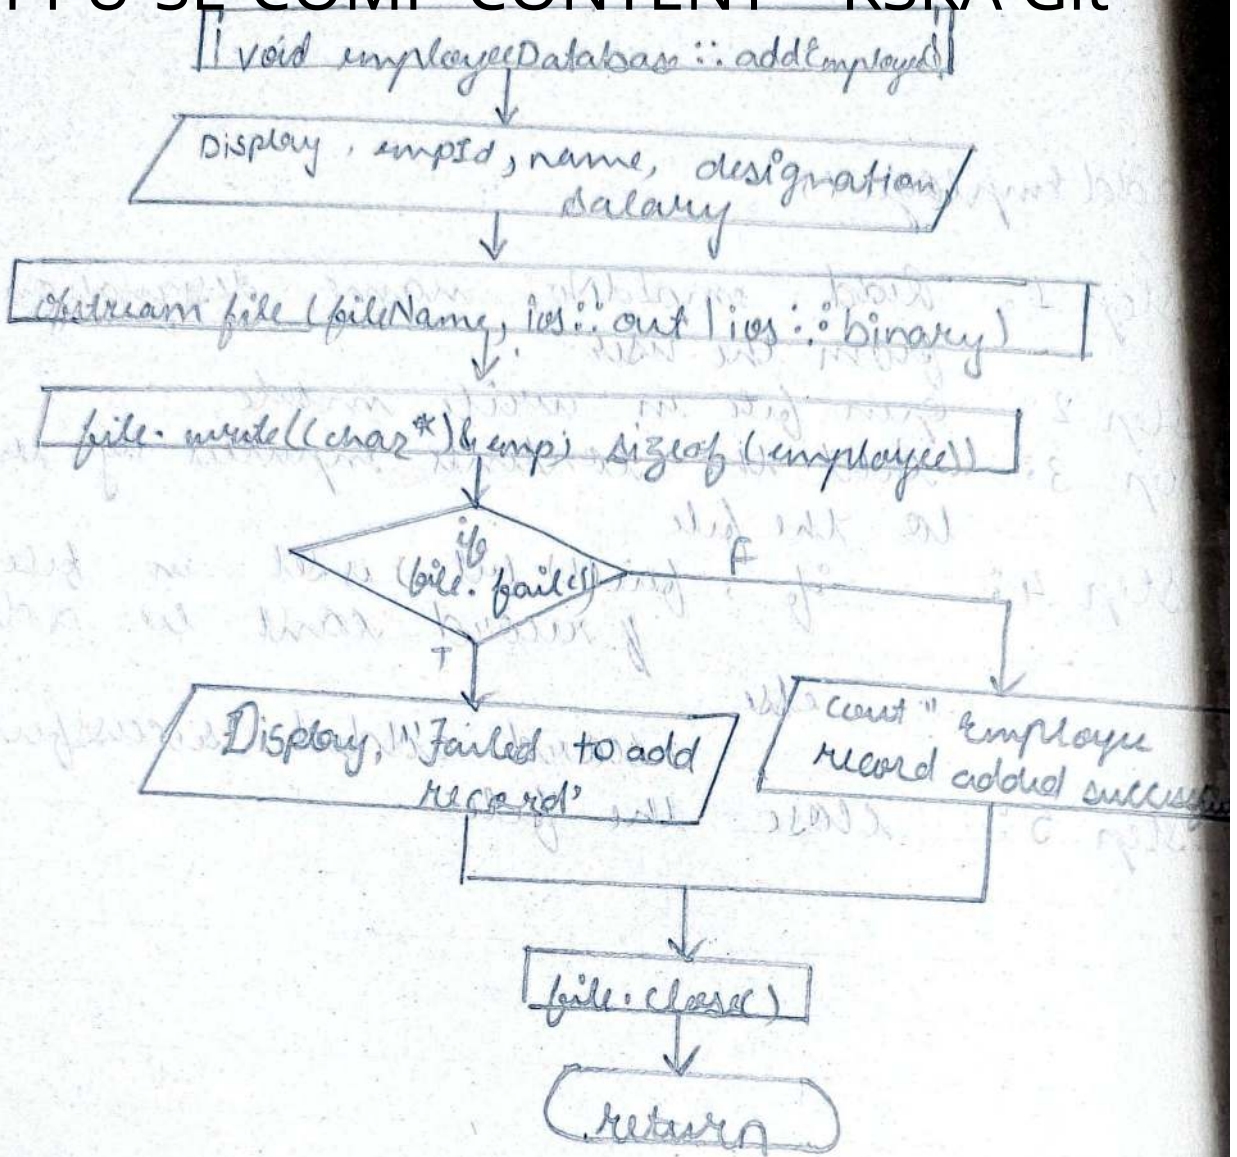 PPU SE COMP CONTENT - KSKA Git
void employeeDatabase :: addEmployee()
Display, empId, name, designation,
salary
ofstream file (fileName, ios::out | ios::binary)
file.write((char*)&emp; sizeof (employee))
if
(file.fail())
F
T
Display, "Failed to add
record"
cout "Employee
record added
file.close()
return